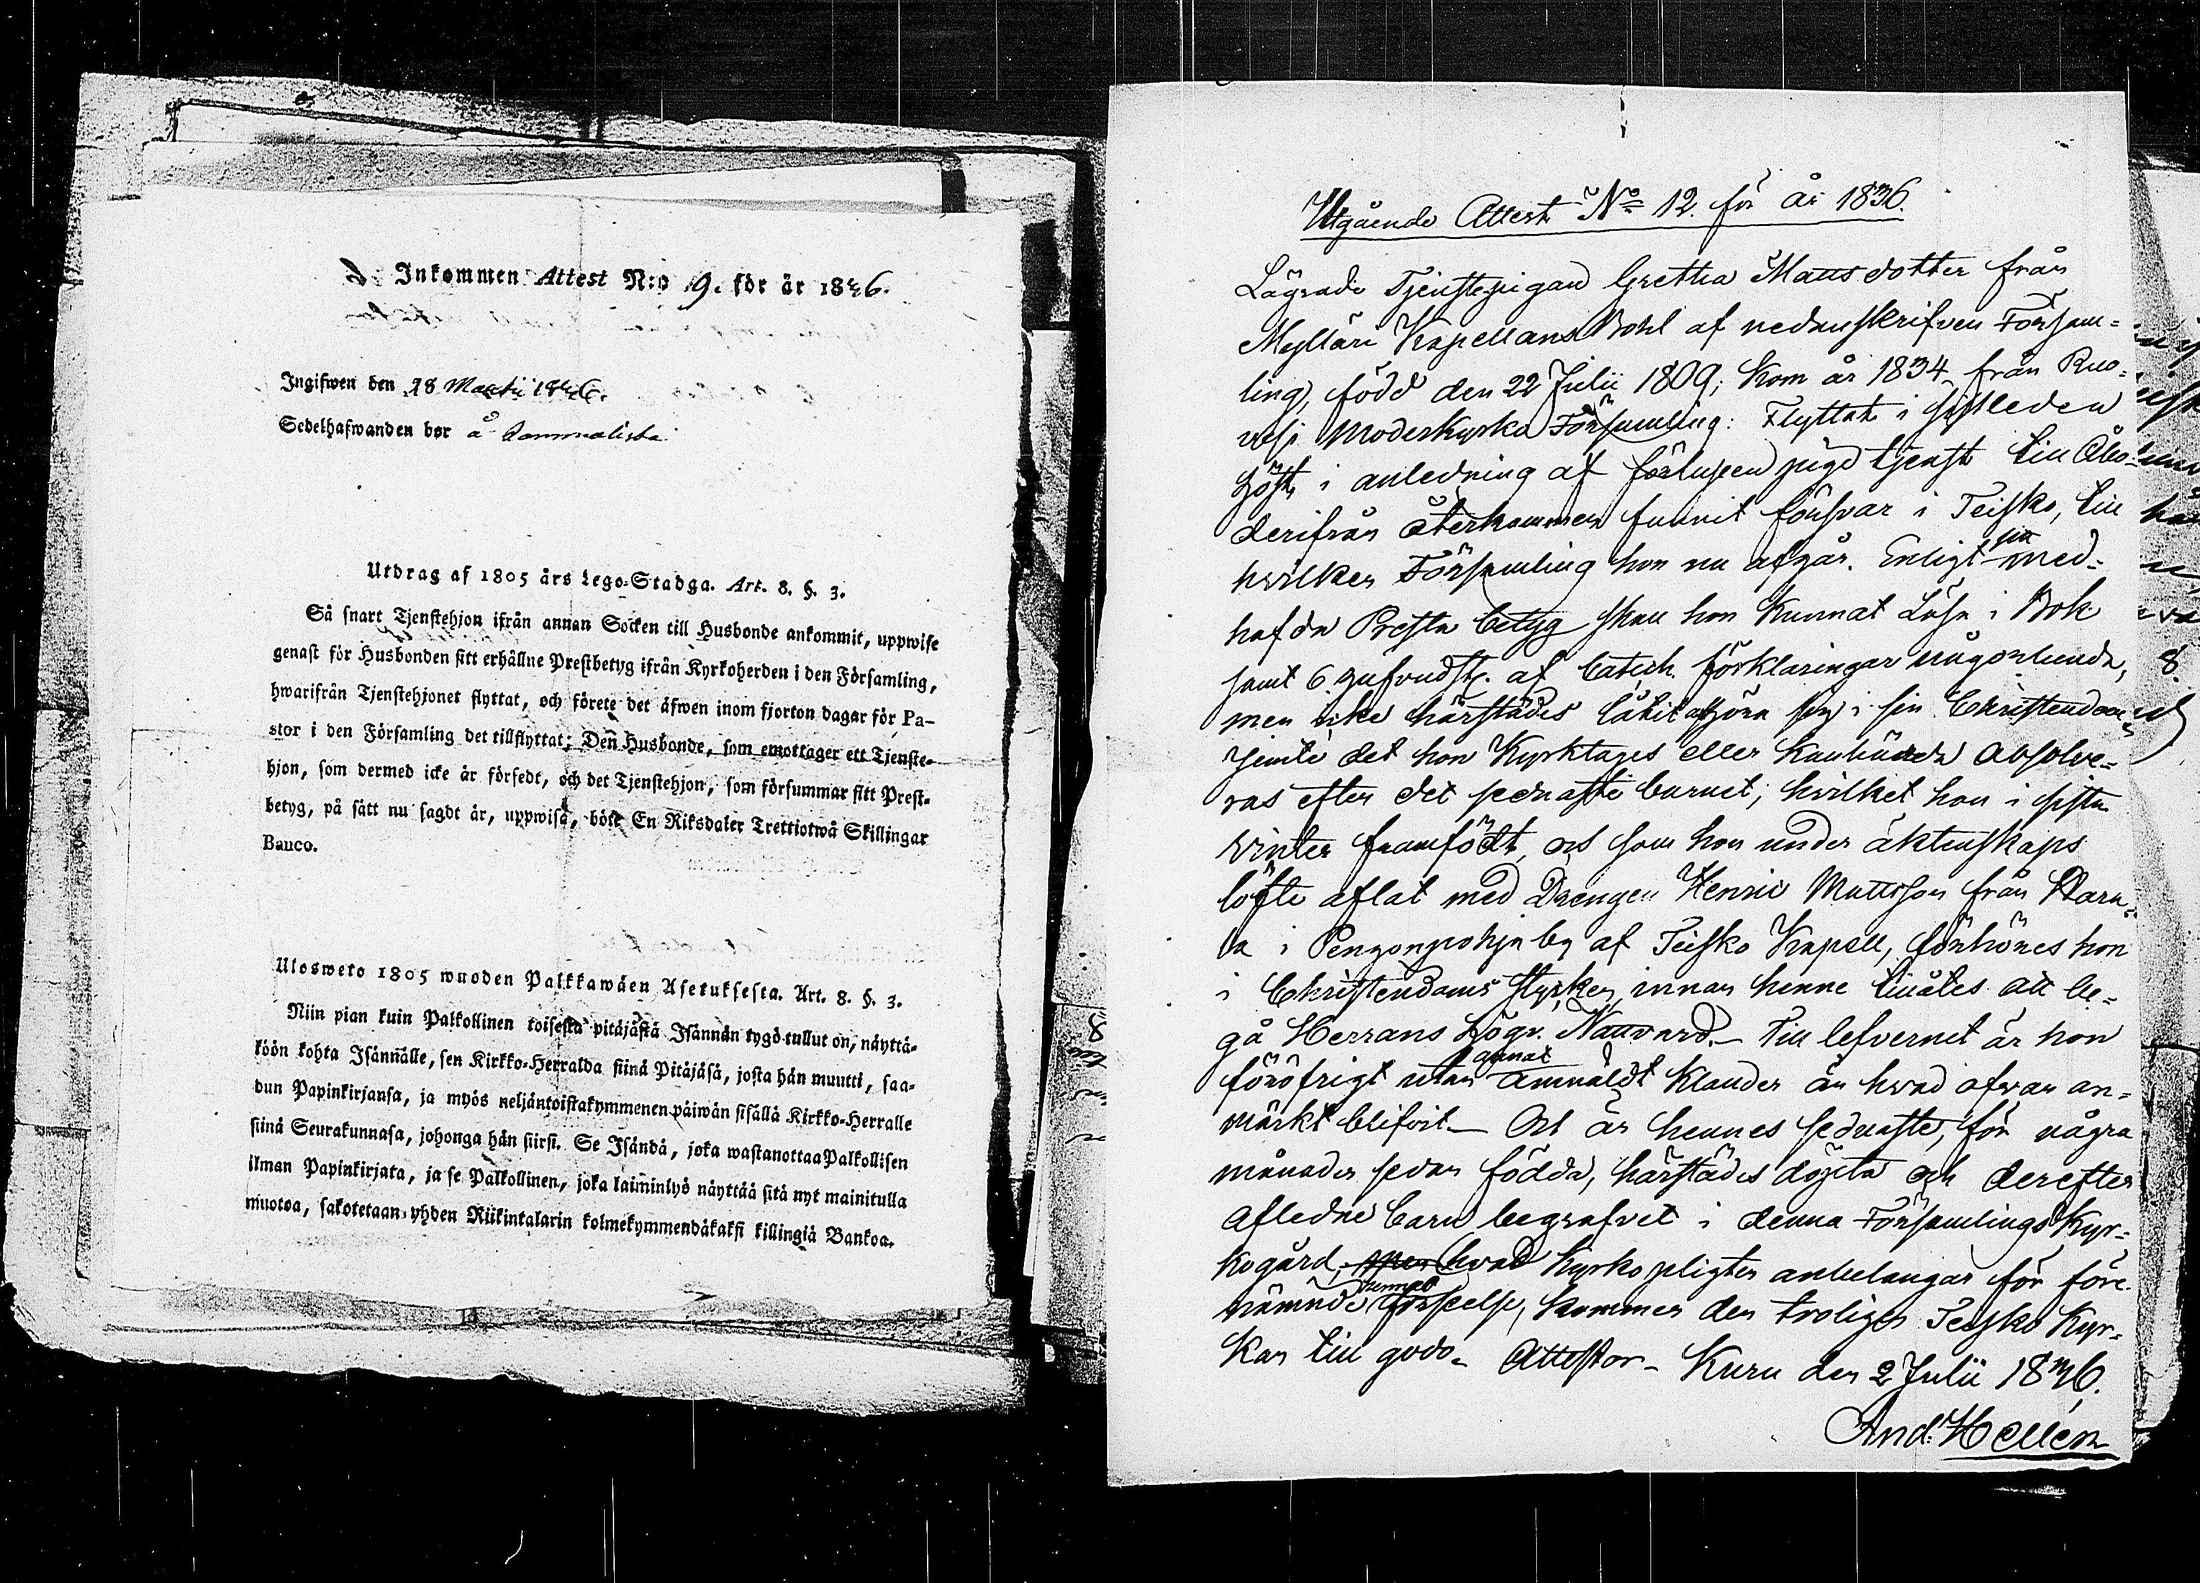 Inkommen Attest N:o 9. för år 1836.
Ingifwen den 18 Martii 1836.
Sedelhafwanden bor å
Utdrag af 1805 års Lego-Stadga. Art. 8. §. 3.
Så snart Tjenstehjon ifrån annan Socken till Husbonde ankommit, uppwise
genast för Husbonden sitt erhållne Prestbetyg ifrån Kyrkoherden i den Församling,
hwarifrån Tjenstehjonet flyttat, och förete det äfwen inom fjorton dagar för Pa-
stor i den Församling det tillflyttat; Den Husbonde, som emottager ett Tjenste-
hjon, som dermed icke är försedt, och det Tjenstehjon, som försummar sitt Prest-
betyg, på sätt nu sagdt är, uppwisa, böte En Riksdaler Trettiotwå Skillingar
Banco.
Ulosweto 1805 wuoden Palkkawäen Asetuksesta. Art. 8. §. 3.
Niin pian kuin Palkollinen toisesta pitäjästä Isännän tygö tullut on, näyttä-
köön kohta Isännälle, sen Kirkko-Herralda siinä Pitäjäsä, josta hän muutti, saa-
dun Papinkirjansa, ja myös neljäntoistakymmenen päiwän sisällä Kirkko-Herralle
siinä Seurakunnasa, johonga hän siirsi. Se Isändä, joka wastanottaa Palkollisen
ilman Papinkirjata, ja se Palkollinen, joka laiminlyö näyttää sitä nyt mainitulla
muotoa, sakotetaan yhden Riikintalarin kolmekymmendäkaksi killingiä Bankoa.
Utgående Attest No 12. för år 1836.
Lägrade Tjenstepigan Gretha Mattsdotter från
Mylläri Kapellans Bohl af nedanskrifven Försam-
ling, född den 22 Julii 1809; kom år 1834 från Ruo-
vesi Moderkyrko Församling: Flyttat i sistleden
höst, i anledning af förlupen pigo tjenst till Åbo
derifrån återkommen funnit försvar i Teisko, till
hvilken Församling hon nu afgår. Enligt sin med-
hafda Presta betyg skall hon kunnat Läsa i Bok
samt 6. hufvudst. af Catech. förklaringar någorlunda,
men icke härstädes låtit afhöra sig i sin Christendom
jemte det hon Kyrktages eller kanhända absolve-
ras efter det sednaste barnet; hvilket hon i sista
vinter framfödt, och som hon under äktenskaps
löfte aflat med Drengen Henric Mattsson från
la i Pengonpohja by af Teisko Kapell, förhöres hon
i Christendoms stycken, innan henne tillåtes att be-
gå Herrans Högv. Nattvard. Till lefvernet är hon
föröfrigt utan annat anmäldt klander än hvad ofvan an-
märkt blifvit. Och är hennes sednaste, för några
månader sedan födda, härstädes döpta och derefter
aflidne barn begrafvet i denna Församlings Kyr-
kogård, men hvad Kyrkopligten anbelangar för före
nämnde förseelse, kommer den troligen Teisko Kyr-
kan till godo. Attestor. Kuru den 2 Julii 1836.
And: Hellén